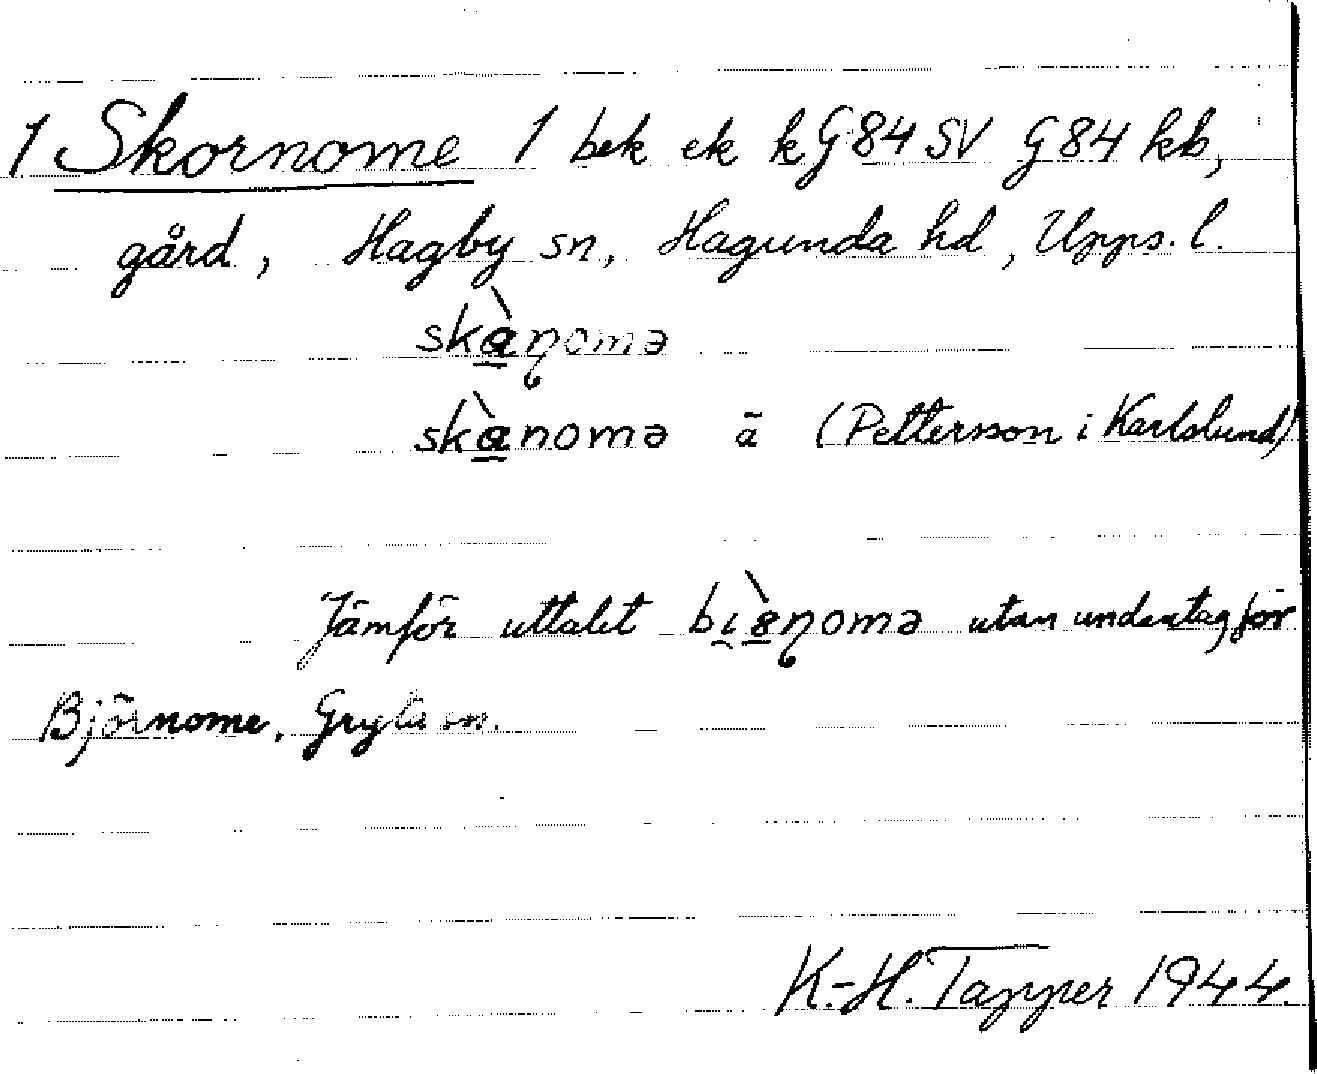 1 Skornome 1 bek ek k G 84 SV G 84 kb,
gård, Hagby sn, Hagunda hd, Upps. l.
skàɳomə
skànomə ã (Pettersson i Karlslund)
Jämför uttalet bìɵɳomə utan undantag för
Björnome, Gryta sn.
K.-H. Tapper 1944.